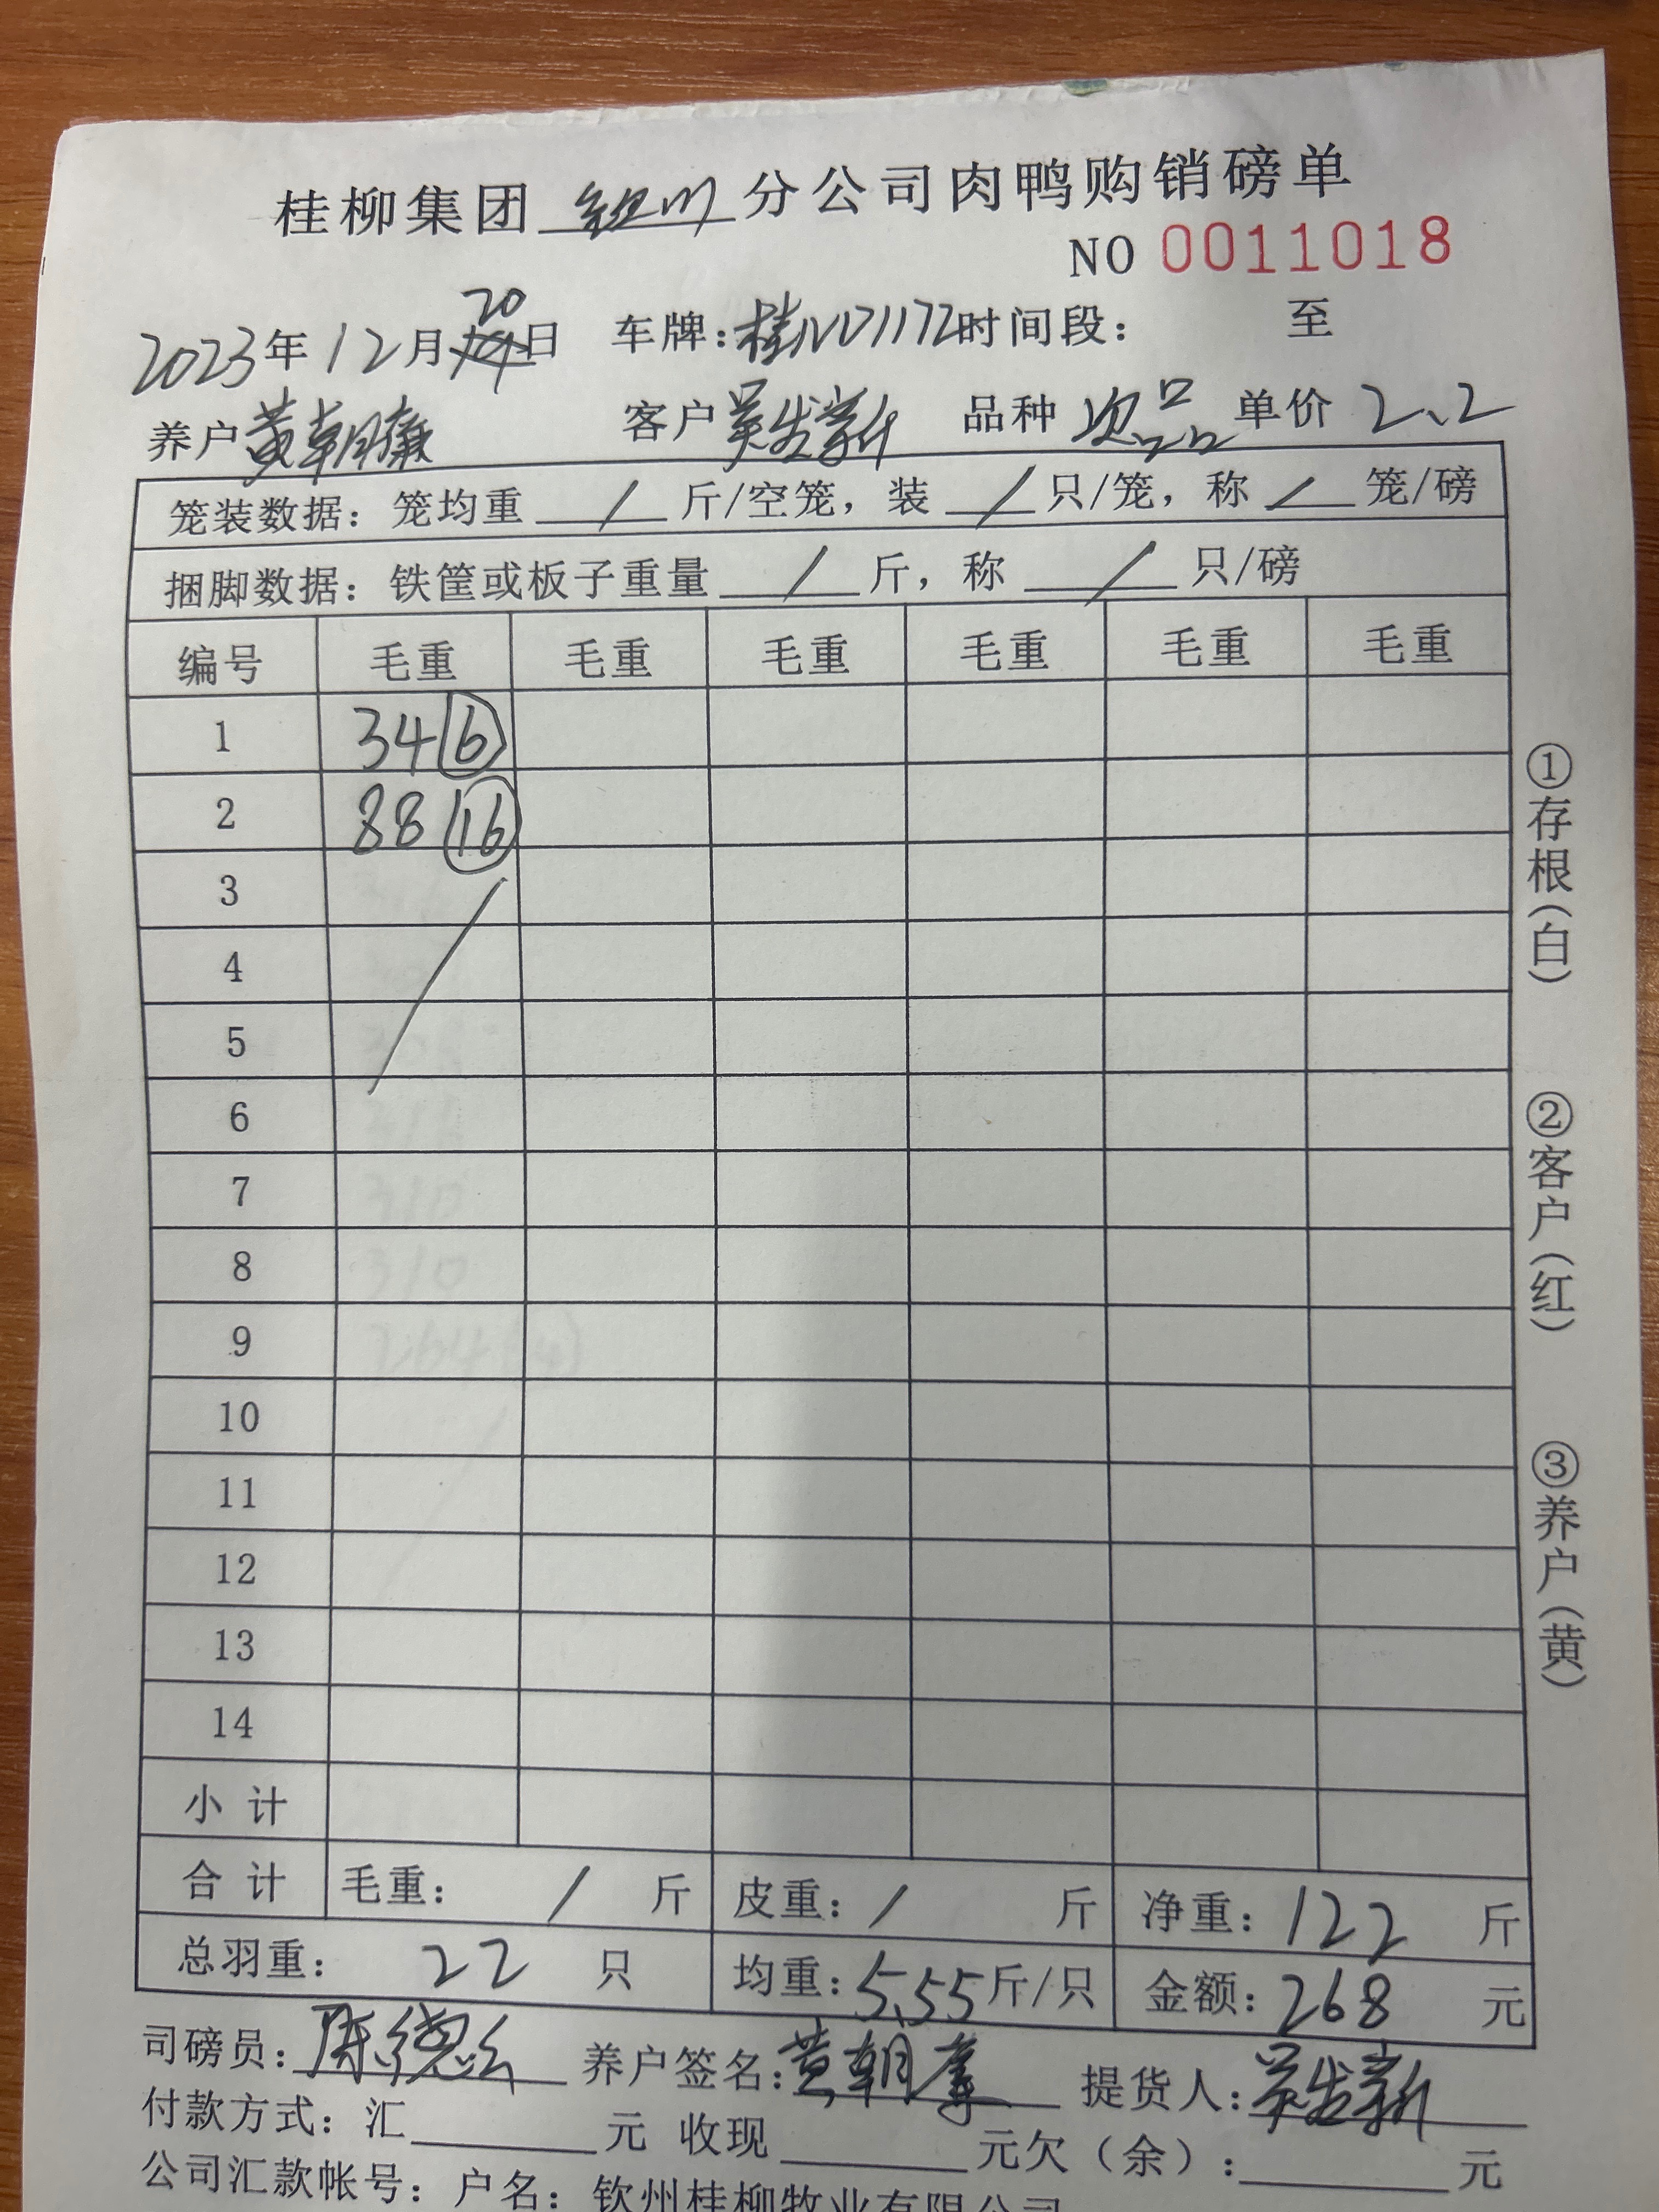 桂柳集团 钦州 分公司肉鸭购销磅单
NO 0011018
2023年12月20日 车牌:桂ND1172时间段: 至
养户黄朝 客户吴发新 品种 次品 单价 2.2
笼装数据: 笼均重 / 斤/空笼, 装 / 只/笼, 称 / 笼/磅
捆脚数据: 铁筐或板子重量 / 斤, 称 / 只/磅
编号 毛重 毛重 毛重 毛重 毛重 毛重
1 34 ⑥
2 88 ⑯
3
4
5
6
7
8
9
10
11
12
13
14
小计
合计 毛重: / 斤 皮重: / 斤 净重: 122 斤
总羽重: 22 只 均重: 5.55斤/只 金额: 268 元
司磅员: 陈德 养户签名:黄朝 提货人:吴发新
付款方式: 汇 元 收现 元欠(余): 元
公司汇款帐号: 户名: 钦州桂柳牧业有限公司
①存根(白)
②客户(红)
③养户(黄)